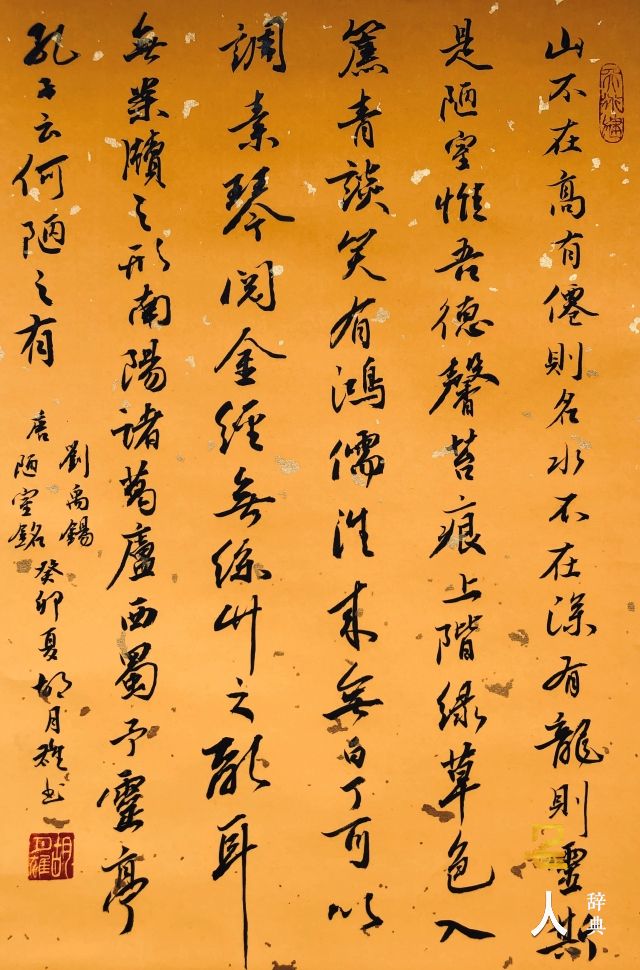 山不在高有僊則名水不在深有龍則靈斯
是陋室惟吾德馨苔痕上階綠草色入
簾青談笑有鴻儒往來無白丁可以
調素琴閱金經無絲竹之亂耳
無案牘之形南陽諸葛廬西蜀子雲亭
孔子云何陋之有
劉禹錫
唐陋室銘癸卯夏胡月雄书
胡月雄
人
辞典